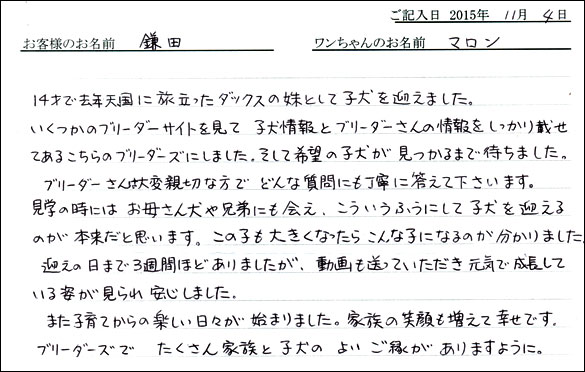 ご記入日 2015年 11月 4日
お客様のお名前 鎌田 ワンちゃんのお名前 マロン
14才で去年天国に旅立ったダックスの妹として子犬を迎えました。
いくつかのブリーダーサイトを見て 子犬情報とブリーダーさんの情報をしっかり載せ
てあるこちらのブリーダーズにしました。そして希望の子犬が見つかるまで待ちました。
ブリーダーさんは大変親切な方で どんな質問にも丁寧に答えて下さいます。
見学の時には お母さん犬や兄弟にも会え、こういうふうにして子犬を迎える
のが本来だと思います。この子も大きくなったらこんな子になるのが分かりました。
迎えの日まで3週間ほどありましたが、動画も送っていただき元気で成長して
いる姿が見られ 安心しました。
また子育てからの楽しい日々が始まりました。家族の笑顔も増えて幸せです。
ブリーダーズで たくさん家族と子犬の よいご縁がありますように。